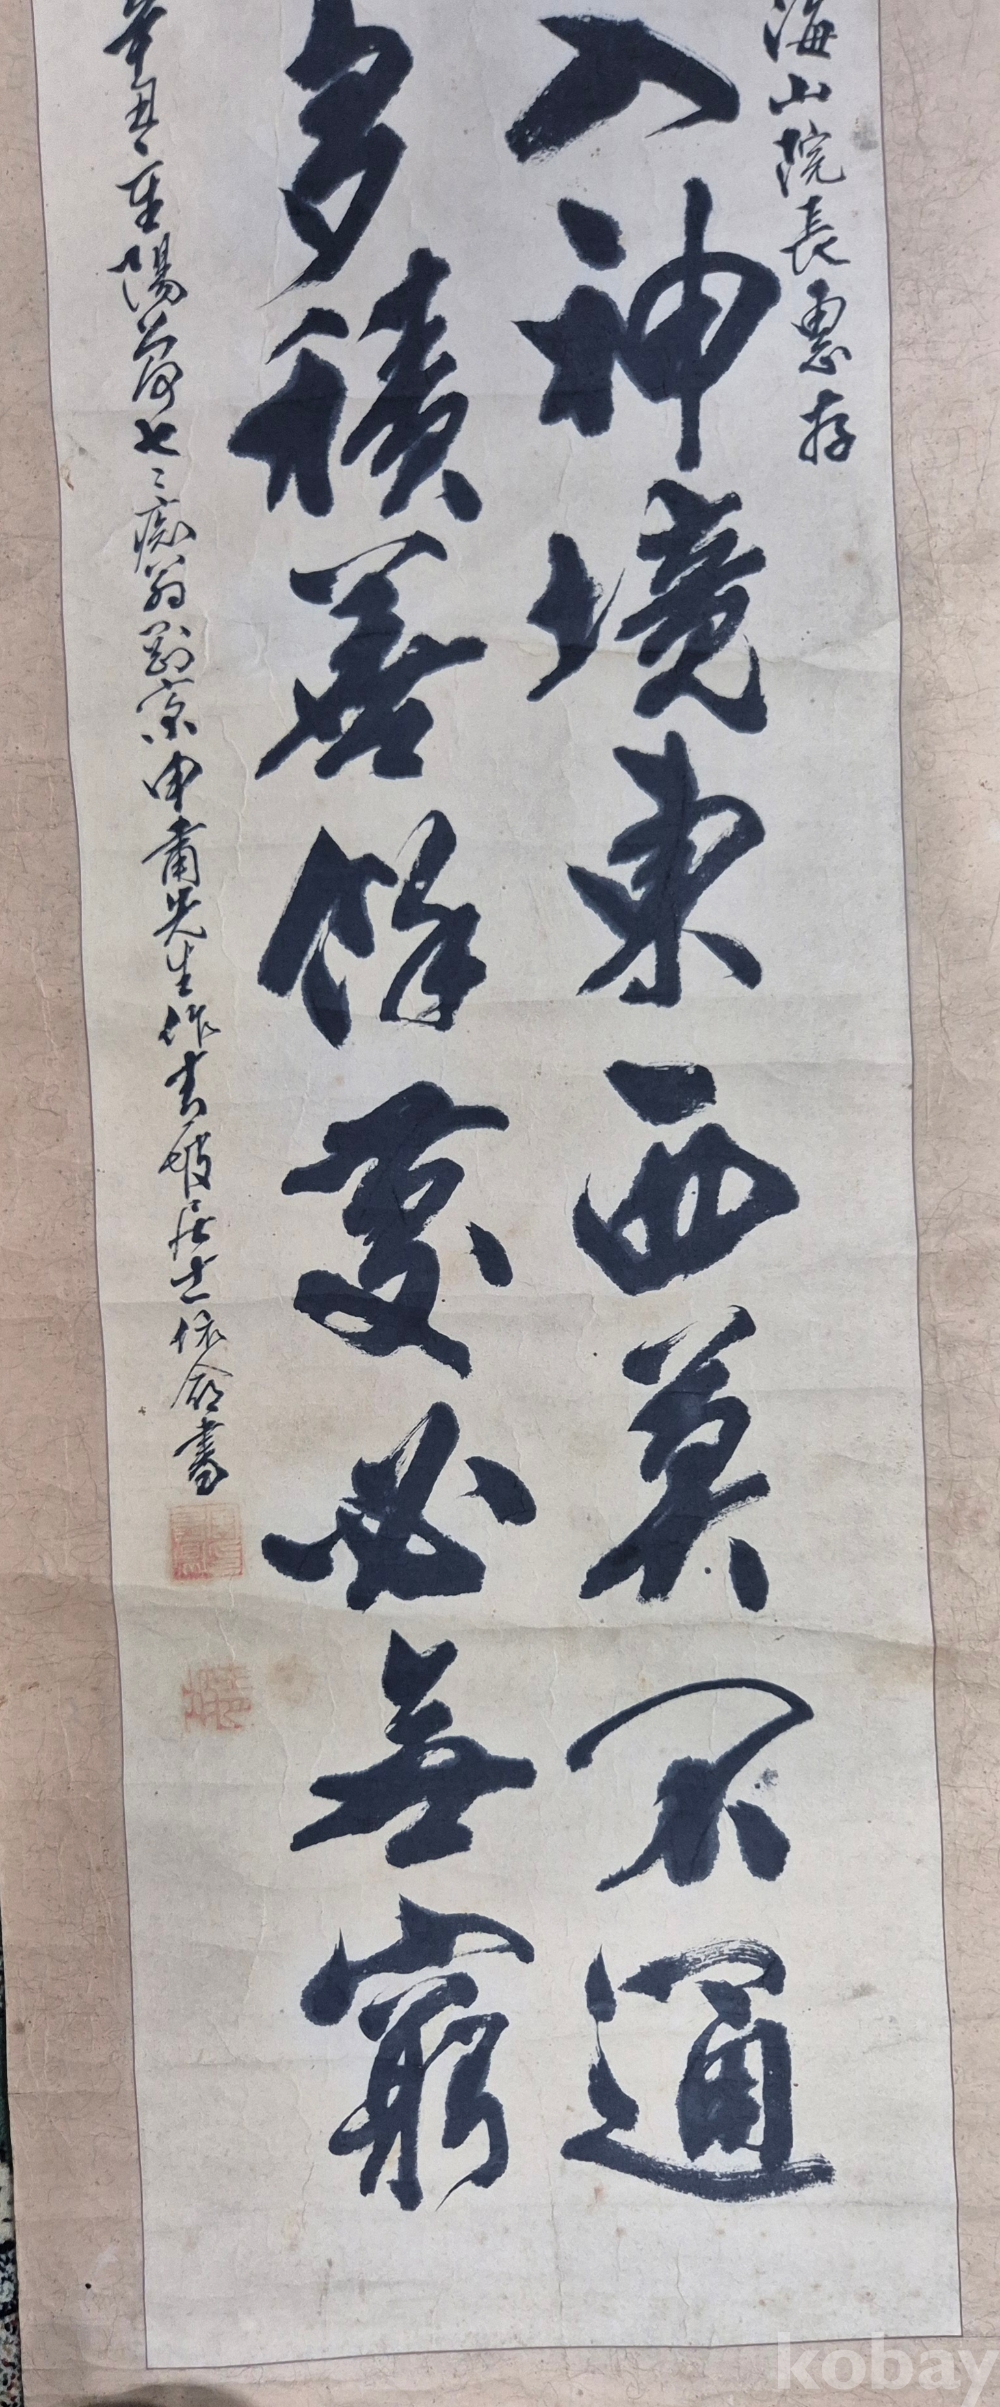 海山院長惠存
入神境東西莫不通
多積善餘慶必無窮
辛丑重陽前七二痴翁劉宗申甫先生作青坡居士依命書
kobay